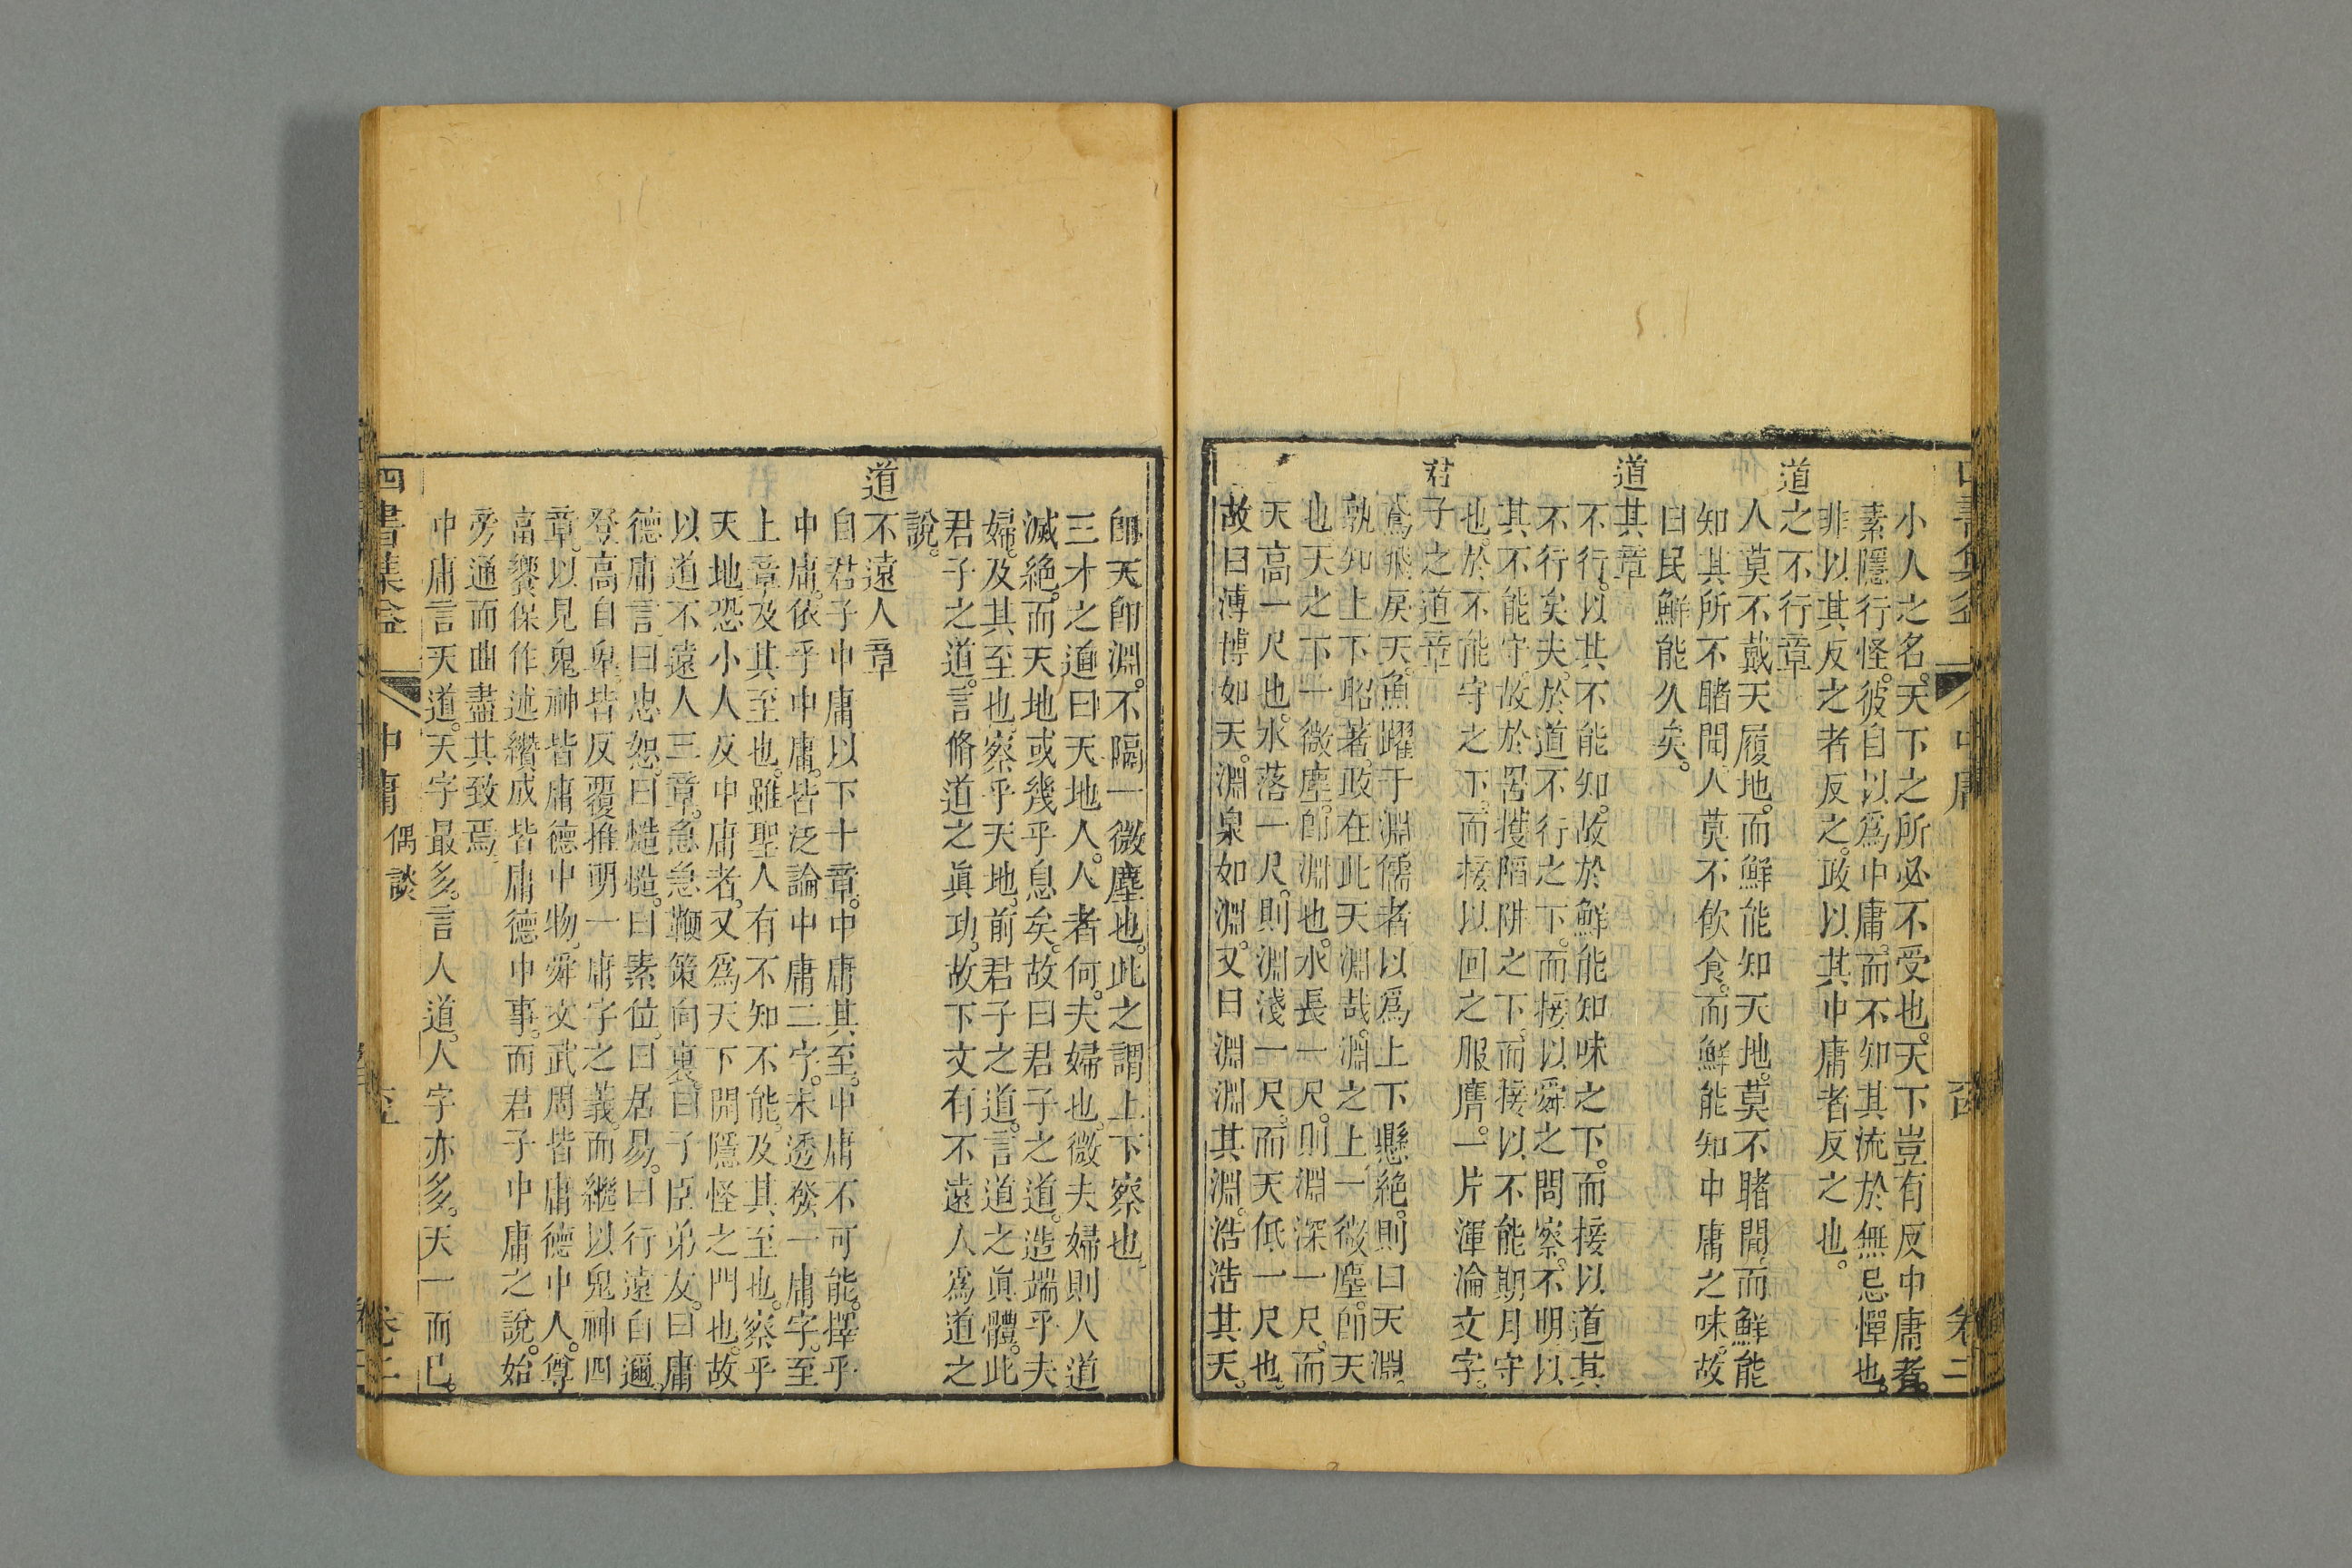 小人之名。天下之所必不受也。天下豈有反中庸者。
素隱行怪。彼自以爲中庸。而不知其流於無忌憚也。
非以其反之者反之。政以其中庸者反之也。
道之不行章
人莫不戴天履地。而鮮能知天地。莫不睹聞。而鮮能
知其所不睹聞。人莫不飲食。而鮮能知中庸之味。故
曰民鮮能久矣。
道其章
不行。以其不能知。故於鮮能知味之下。而接以道其
不行矣夫。於道不行之下。而接以舜之問察。不明以
其不能守。故於罟擭陷阱之下。而接以不能期月守
也。於不能守之下。而接以回之服膺。一片渾淪文字。
君子之道章
鳶飛戾天。魚躍于淵。儒者以爲上下懸絶。則曰天淵。
孰知上下昭著。政在此天淵哉。淵之上一微塵。卽天
也。天之下一微塵。卽淵也。水長一尺。則淵深一尺。而
天高一尺也。水落一尺。則淵淺一尺。而天低一尺也。
故曰溥博如天。淵泉如淵。又曰淵淵其淵。浩浩其天。
卽天卽淵。不隔一微塵也。此之謂上下察也。
三才之道曰天地人。人者何。夫婦也。微夫婦則人道
滅絶。而天地或幾乎息矣。故曰君子之道。造端乎夫
婦。及其至也。察乎天地。前君子之道。言道之眞體。此
君子之道。言脩道之眞功。故下文有不遠人爲道之
說。
道不遠人章
自君子中庸以下十章。中庸其至。中庸不可能。擇乎
中庸。依乎中庸。皆泛論中庸二字。未透發一庸字。至
上章及其至也。雖聖人有不知不能。及其至也。察乎
天地。恐小人反中庸者。又爲天下開隱怪之門也。故
以道不遠人三章。急急鞭策向裏。曰子臣弟友。曰庸
德庸言。曰忠恕。曰慥慥。曰素位。曰居易。曰行遠自邇。
登高自卑。皆反覆推明一庸字之義。而繼以鬼神四
章。以見鬼神皆庸德中物。舜文武周皆庸德中人。尊
富饗保作述纘成皆庸德中事。而君子中庸之說。始
旁通而曲盡其致焉。
中庸言天道。天字最多。言人道。人字亦多。天一而已。
四書集益 中庸 偶談 卷二